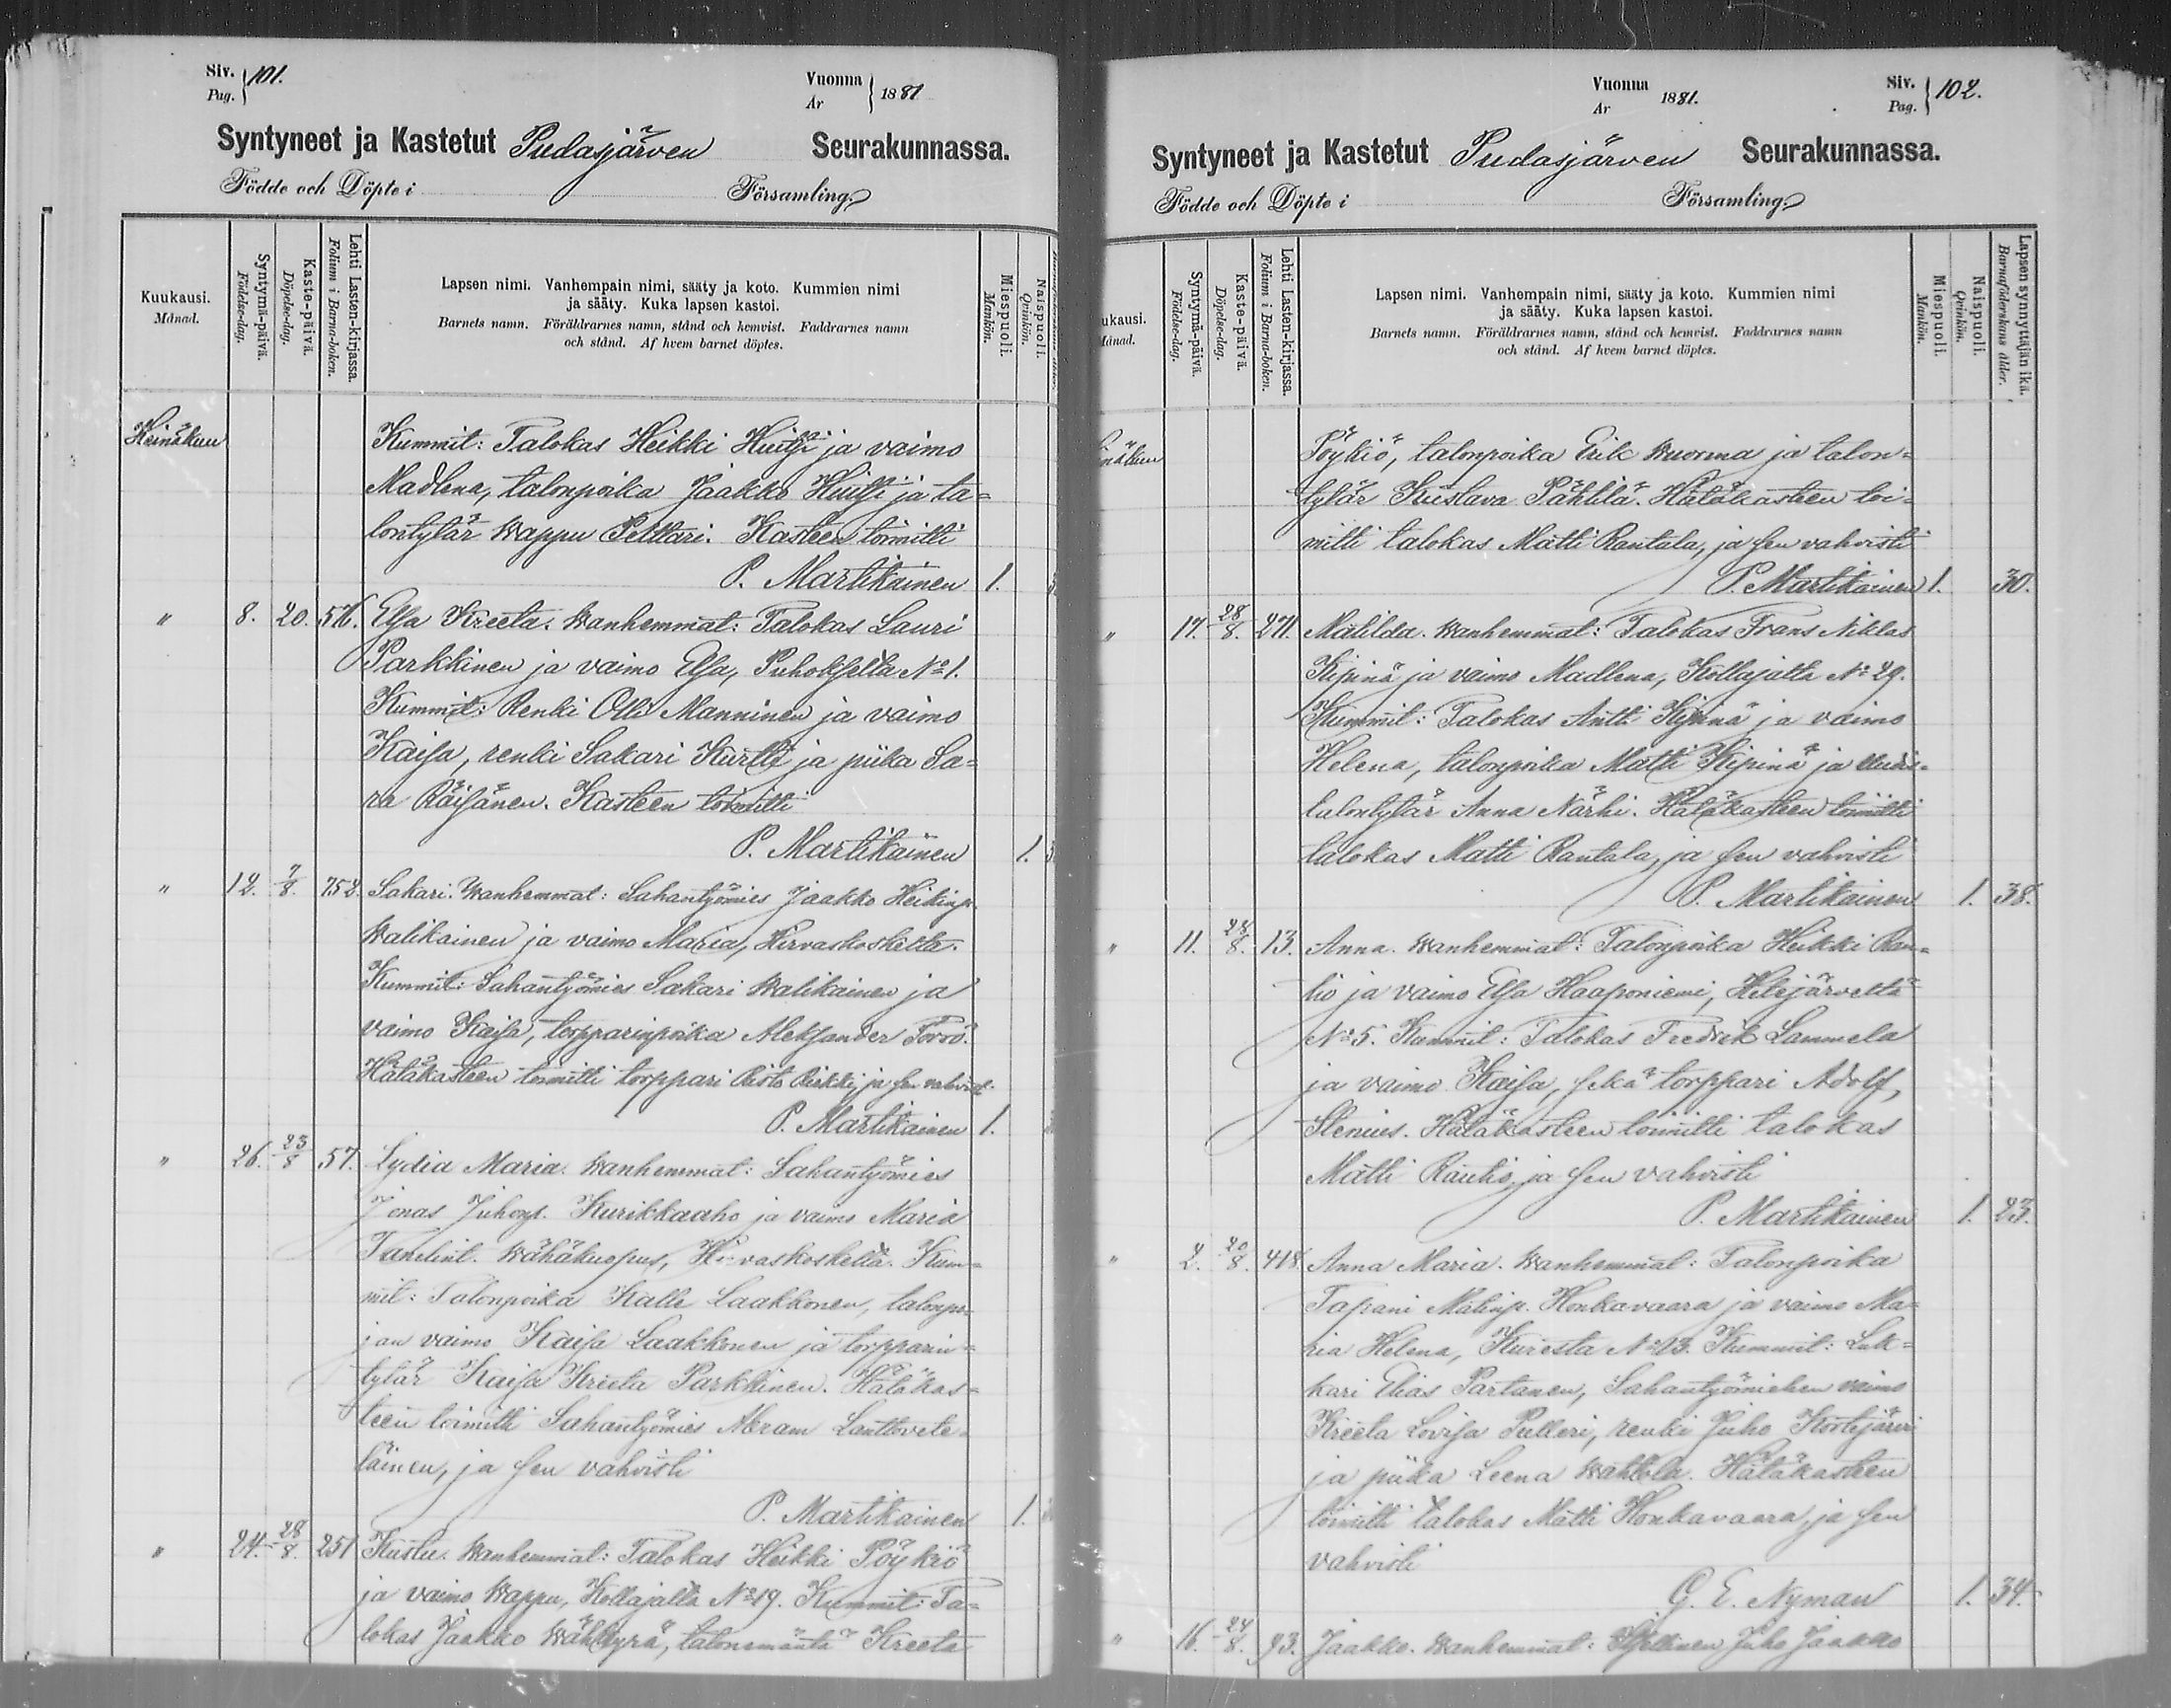 Siv. 101.
Pag.
Vuonna 1881
Ar
Syntyneet ja Kastetut Pudasjärven Seurakunnassa.
Födde och Döpte i Församling.
Kuukausi.
Månad.
Syntymä-päivä.
Födelse-dag.
Kaste-päivä.
Döpelse-dag.
Lehti Lasten-kirjassa.
Folium i Barna-boken.
Lapsen nimi. Vanhempain nimi, sääty ja koto. Kummien nimi
ja sääty. Kuka lapsen kastoi.
Barnets namn. Föräldrarnes namn, stånd och hemvist. Faddrarnes namn
och stånd. Af hvem barnet döptes.
Miespuoli.
Mankön.
Naispuoli.
Qvinkön.
Heinäkuu Kummit: Talokas Heikki ja vaimo
Madlena, talonpoika Jaakko ja ta=
lontytär Wappu Petttari. Kasteen toimitti
P. Martikainen 1.
" 8. 20. 576. Elsa Kreeta. Wanhemmat: Talokas Lauri
Parkkinen ja vaimo Elsa, Puhokselta No 1.
Kummit: Renki Olli Manninen ja vaimo
Kaisa, renki Sakari Kurtti ja piika Sa=
ra Räisänen. Kasteen toimitti
P. Martikainen 1.
" 12. 7/8. 752. Sakari. Wanhemmat: Sahantyömies Jaakko Heikinp.
Walikainen ja vaimo Maria, Hirvaskoskelta.
Kummit: Sahantyömies Sakari Walikainen ja
vaimo Kaisa, torpparinpoika Aleksander
Hätäkasteen toimitti torppari Risto ja sen vahvist.
P. Martikainen 1.
" 26. 23/8 57. Lydia Maria. Wanhemmat: Sahantyömies
Jonas Juhonp. Kurikkaaho ja vaimo Maria
Wähäkuopus, Hirvaskoskelta. Kum=
mit: Talonpoika Kalle Laakkonen, talonpo=
jan vaimo Kaisa Laakkonen ja torpparin=
tytär Kaisa Kreeta Parkkinen. Hätäkas=
teen toimitti Sahantyömies Abram Lanttovete=
läinen, ja sen vahvisti
P. Martikainen 1.
" 24. 28/8. 251 Kustu. Wanhemmat: Talokas Heikki Pöykiö
ja vaimo Wappu, Kollajalta No 19. Kummit: Ta=
lokas Jaakko Wähkyrä, talonemäntä Kreeta
Vuonna 1881.
Ar
Siv. 102.
Pag.
Syntyneet ja Kastetut Pudasjärven Seurakunnassa.
Födde och Döpte i Församling.
ukausi.
Månad.
Syntymä-päivä.
Födelse-dag.
Kaste-päivä.
Döpelse-dag.
Lehti Lasten-kirjassa.
Folium i Barna-boken.
Lapsen nimi. Vanhempain nimi, sääty ja koto. Kummien nimi
ja sääty. Kuka lapsen kastoi.
Barnets namn. Föräldrarnes namn, stånd och hemvist. Faddrarnes namn
och stånd. Af hvem barnet döptes.
Miespuoli.
Mankön.
Naispuoli.
Qvinkön.
Lapsensynnyttäjän ikä.
Barnaföderskans ålder.
näkuu Pöykiö, talonpoika Erik Wuorma ja talon=
tytär Kustava Pähtilä. Hätäkasteen toi=
mitti talokas Matti Rantala, ja sen vahvisti
P. Martikainen 1. 30.
" 17. 28/8. 271. Matilda. Wanhemmat: Talokas Frans Niklas
Kipinä ja vaimo Madlena, Kollajalta No 29.
Kummit: Talokas Antti Kipinä ja vaimo
Helena, talonpoika Matti Kipinä ja uudis=
talontytär Anna Närhi. Hätäkasteen toimitti
talokas Matti Rantala, ja sen vahvisti
P. Martikainen 1. 38.
" 11. 28/8. 13. Anna. Wanhemmat: Talonpoika Heikki Rau=
tio ja vaimo Elsa Haaponiemi, Hetejärveltä
No 5. Kummit: Talokas Fredrik Lammela
ja vaimo Kaisa, sekä torppari Adolf,
Stenius. Hätäkasteen toimitti talokas
Matti Rautio, ja sen vahvisti
P. Martikainen 1. 23.
" 2. 20/8. 418. Anna Maria. Wanhemmat: Talonpoika
Tapani Matinp. Honkavaara ja vaimo Ma=
ria Helena, Kuresta No 13. Kummit: Luk=
kari Elias Partanen, Sahantyömiehen vaimo
Kreeta Lovisa Pulleri, renki Juho Kortejärvi
ja piika Leena Wattola. Hätäkasteen
toimitti talokas Matti Honkavaara, ja sen
vahvisti
G. E. Nyman 1. 34.
" 16. 24/8. 93. Jaakko. Wanhemmat: Itsellinen Juho Jaakko